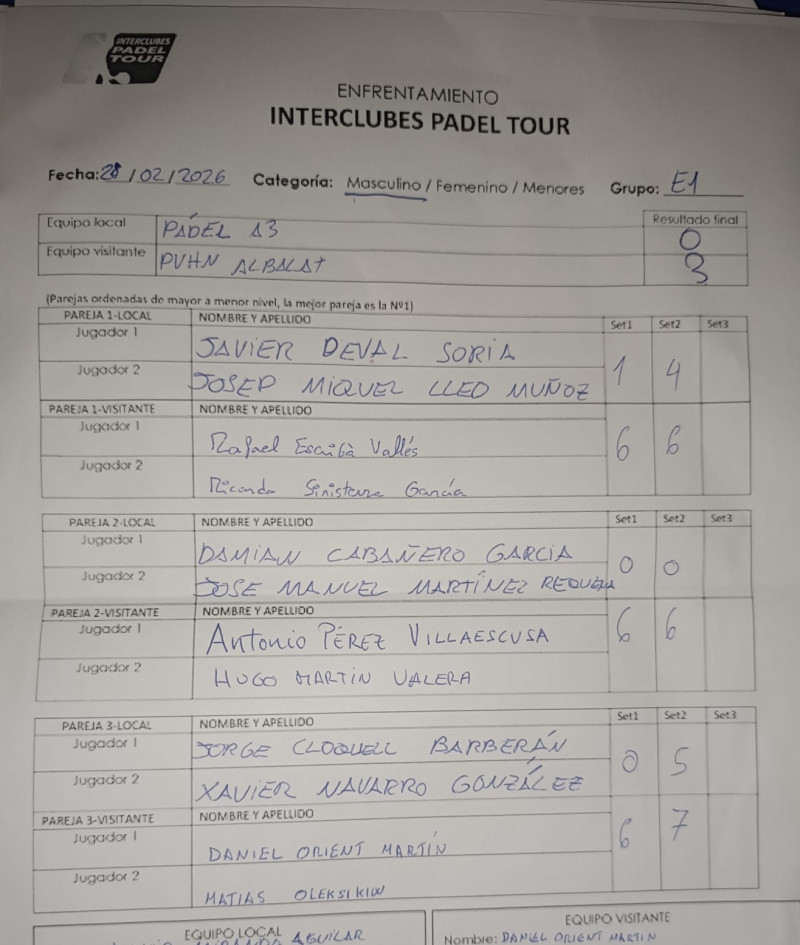 INTERCLUBES
PADEL
TOUR
ENFRENTAMIENTO
INTERCLUBES PADEL TOUR
Fecha: 28/02/2026 Categoría: Masculino / Femenino / Menores Grupo: E1
Resultado final
Equipo local PADEL A3 0
Equipo visitante PVHN ALBALAT 3
(Parejas ordenadas de mayor a menor nivel, la mejor pareja es la Nº1)
PAREJA 1-LOCAL NOMBRE Y APELLIDO Set1 Set2 Set3
Jugador 1 JAVIER DEVAL SORIA
1 4
Jugador 2 JOSEP MIQUEL LLEO MUÑOZ
PAREJA 1-VISITANTE NOMBRE Y APELLIDO
Jugador 1 Rafael Escribà Vallés
6 6
Jugador 2 Ricardo Sinisterra García
PAREJA 2-LOCAL NOMBRE Y APELLIDO Set1 Set2 Set3
Jugador 1 DAMIAN CABAÑERO GARCIA
0 0
Jugador 2 JOSE MANUEL MARTÍNEZ REQUENA
PAREJA 2-VISITANTE NOMBRE Y APELLIDO
Jugador 1 Antonio PÉREZ VILLAESCUSA
6 6
Jugador 2 HUGO MARTIN VALERA
PAREJA 3-LOCAL NOMBRE Y APELLIDO Set1 Set2 Set3
Jugador 1 JORGE CLOQUELL BARBERÁN
0 5
Jugador 2 XAVIER NAVARRO GONZÁLEZ
PAREJA 3-VISITANTE NOMBRE Y APELLIDO
Jugador 1 DANIEL ORIENT MARTÍN
6 7
Jugador 2 MATIAS OLEKSIKIW
EQUIPO LOCAL EQUIPO VISITANTE
AGUILAR Nombre: DANIEL ORIENT MARTIN